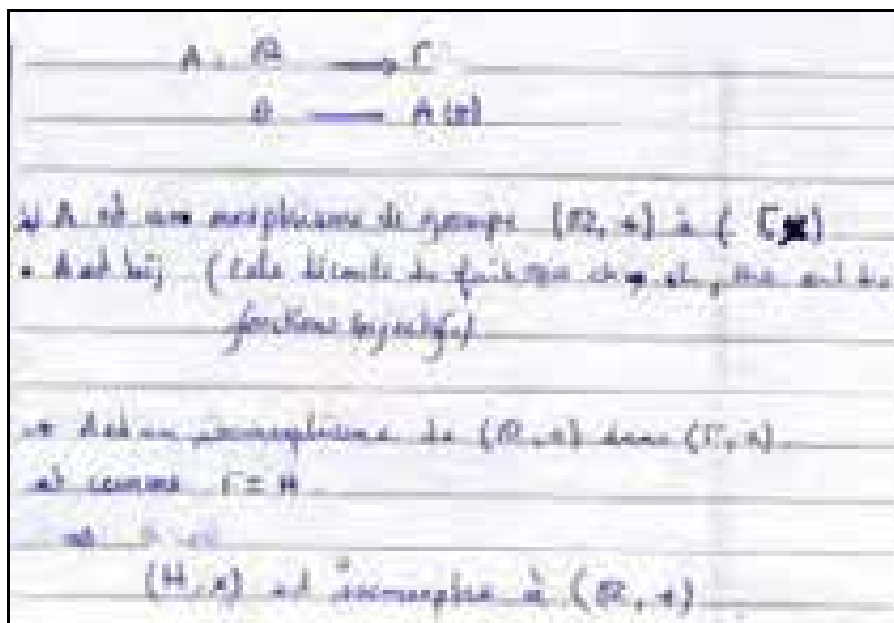 A : ℝ ⟶ Γ
θ ⟶ A(θ)
A est un morphisme de groupe (ℝ, +) à (Γ, ×)
• A est bij (cela découle du fait que ch, sh, sont des
fonctions bijectives)
→ A est un isomorphisme de (ℝ, +) dans (Γ, ×)
et comme Γ = H
(H, ×) est isomorphe à (ℝ, +)